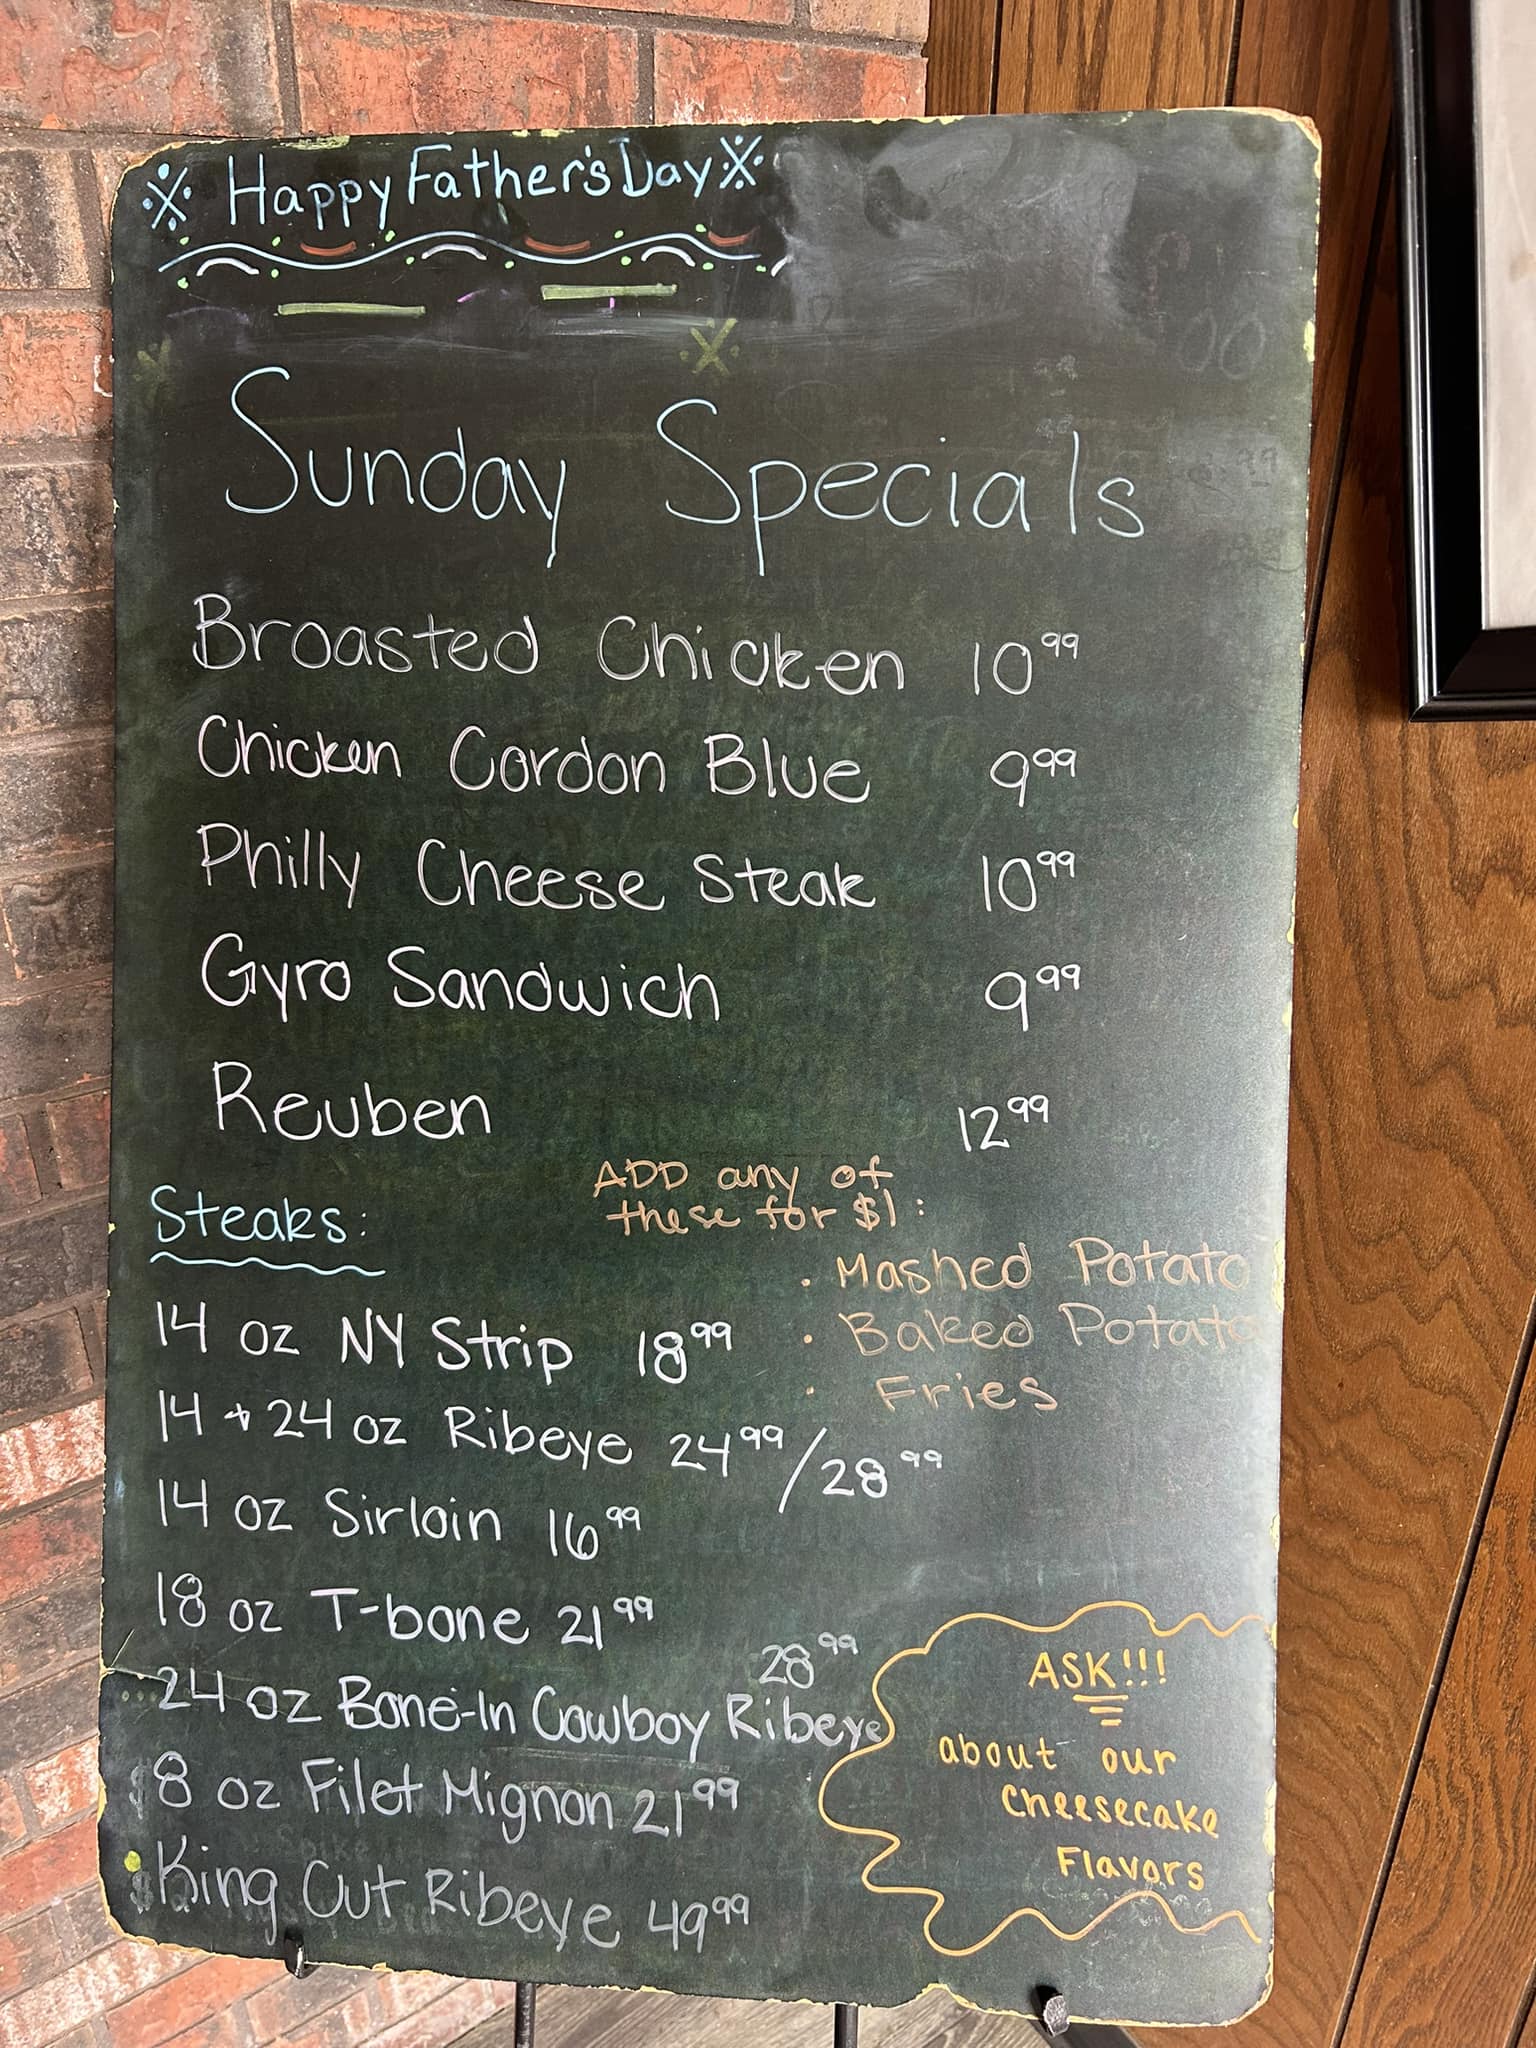 Happy Father's Day
Sunday Specials
Broasted Chicken 10⁹⁹
Chicken Cordon Blue 9⁹⁹
Philly Cheese Steak 10⁹⁹
Gyro Sandwich 9⁹⁹
Reuben 12⁹⁹
ADD any of
these for $1:
· Mashed Potato
· Baked Potato
· Fries
Steaks:
14 oz NY Strip 18⁹⁹
14 + 24 oz Ribeye 24⁹⁹/28⁹⁹
14 oz Sirloin 16⁹⁹
18 oz T-bone 21⁹⁹
28⁹⁹
24 oz Bone-In Cowboy Ribeye
8 oz Filet Mignon 21⁹⁹
King Cut Ribeye 49⁹⁹
ASK!!!
about our
Cheesecake
Flavors